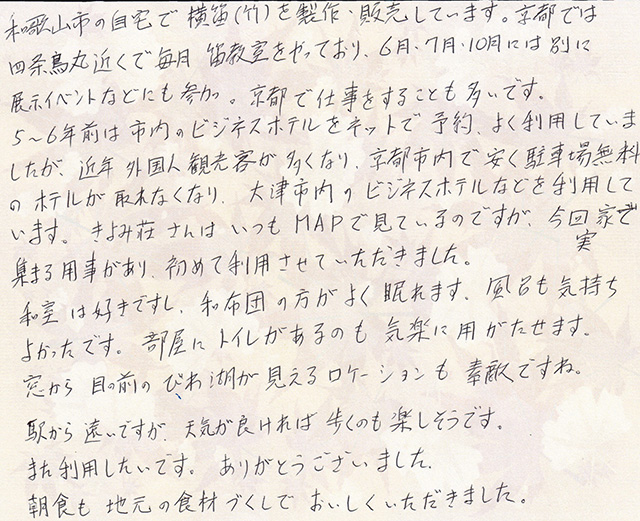 和歌山市の自宅で横笛(竹)を製作・販売しています。京都では
四条烏丸近くで毎月笛教室をやっており、6月・7月・10月には別に
展示イベントなどにも参加。京都で仕事をすることも多いです。
5~6年前は市内のビジネスホテルをネットで予約、よく利用していま
したが、近年外国人観光客が多くなり、京都市内で安く駐車場無料
のホテルが取れなくなり、大津市内のビジネスホテルなどを利用して
います。きよみ荘さんはいつもMAPで見ているのですが、今回実家で
集まる用事があり、初めて利用させていただきました。
和室は好きですし、和布団の方がよく眠れます。風呂も気持ち
よかったです。部屋にトイレがあるのも気楽に用がたせます。
窓から目の前のびわ湖が見えるロケーションも素敵ですね。
駅から遠いですが、天気が良ければ歩くのも楽しそうです。
また利用したいです。ありがとうございました。
朝食も地元の食材づくしでおいしくいただきました。